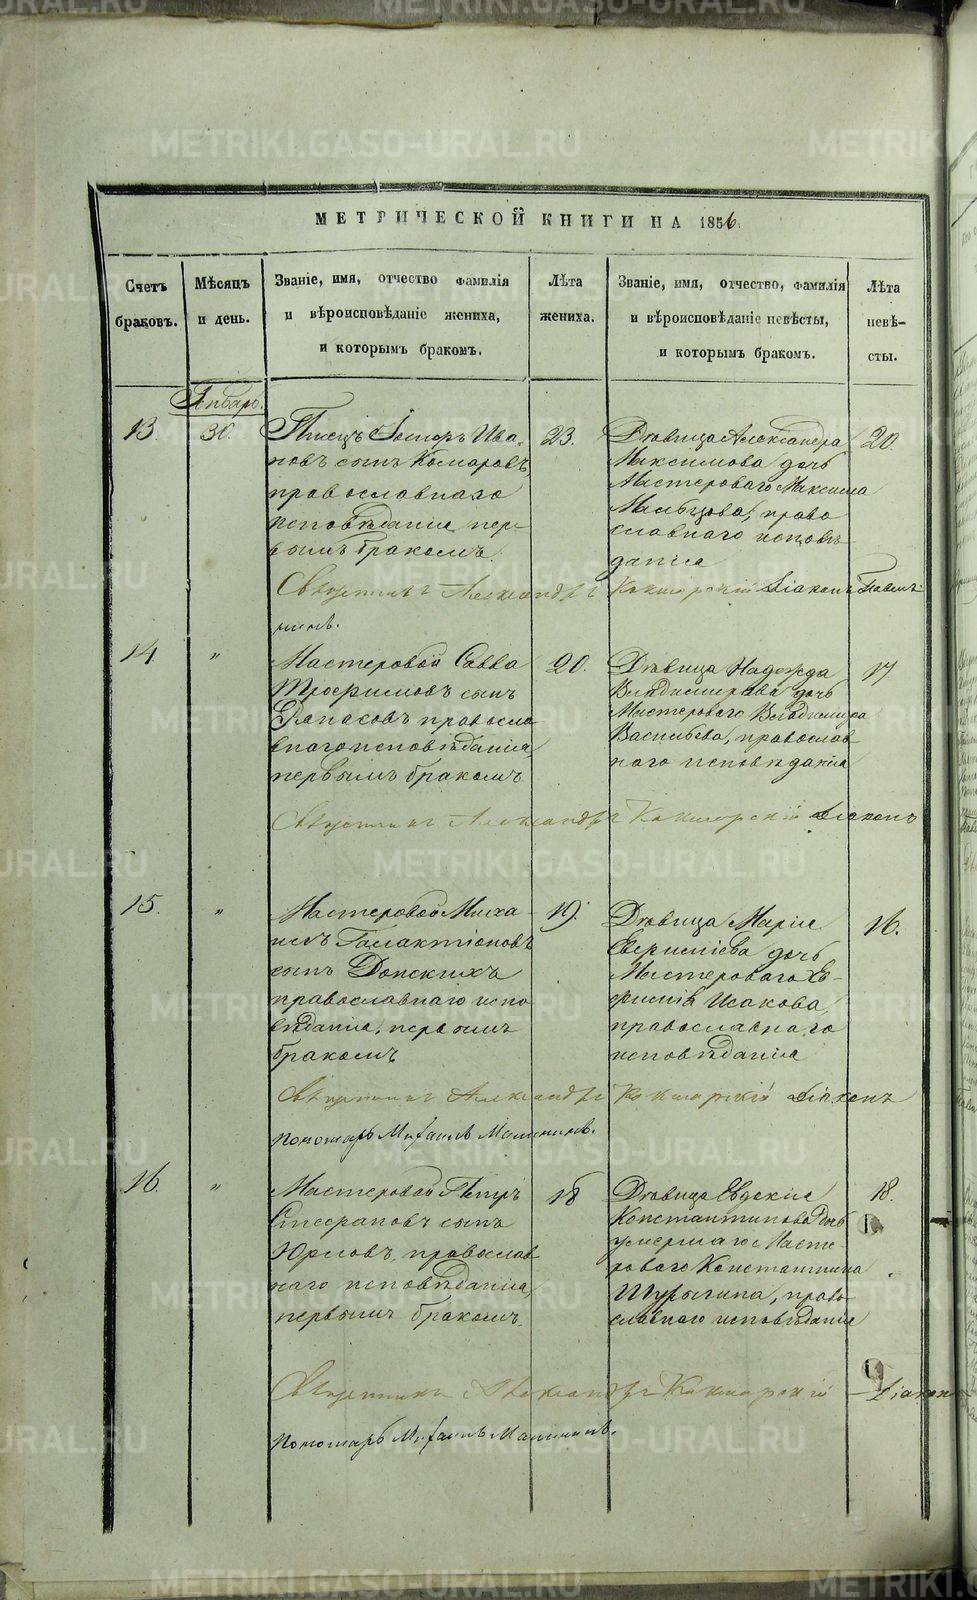 МЕТРИЧЕСКОЙ КНИГИ НА 1856
Счетъ браковъ.
Мѣсяцъ и день.
Званіе, имя, отчество фамилія
и вѣроисповѣданіе жениха,
и которымъ бракомъ.
Лѣта жениха.
Званіе, имя, отчество, фамилія
и вѣроисповѣданіе невѣсты,
и которымъ бракомъ.
Лѣта невѣ-
сты.
Январь.
13.
30.
Писецъ Ива
новъ сынъ Комаровъ,
православнаго
исповѣданія пер
вымъ бракомъ.
23.
Дѣвица Александра
Максимова дочь
Мастероваго Максима
право
славнаго исповѣ
данія
20.
Священникъ Александръ Діаконъ Павелъ
14.
"
Мастеровой Савва
Трофимовъ сынъ
православ
наго исповѣданія,
первымъ бракомъ
20.
Дѣвица Надежда
Владимирова дочь
Мастероваго Владимира
Васильева, православ
наго исповѣданія
17
Священникъ Александръ Діаконъ
15.
"
Мастеровой Миха
илъ Галактіоновъ
сынъ Донскихъ
православнаго испо
вѣданія, первымъ
бракомъ
19.
Дѣвица Марія
Ефиміева дочь
Мастероваго Е-
фимія Исакова,
православнаго
исповѣданія
16.
Священникъ Александръ Діаконъ
пономарь Михаилъ
16.
"
Мастеровой Петръ
Стефановъ сынъ
Юрловъ, православ
наго исповѣданія,
первымъ бракомъ.
18
Дѣвица Евдокія
Константинова дочь
умершаго Масте-
роваго Константина
Шурыгина, право-
славнаго исповѣданія
18.
Священникъ Александръ Діаконъ
пономарь Михаилъ
METRIKI.GASO-URAL.RU